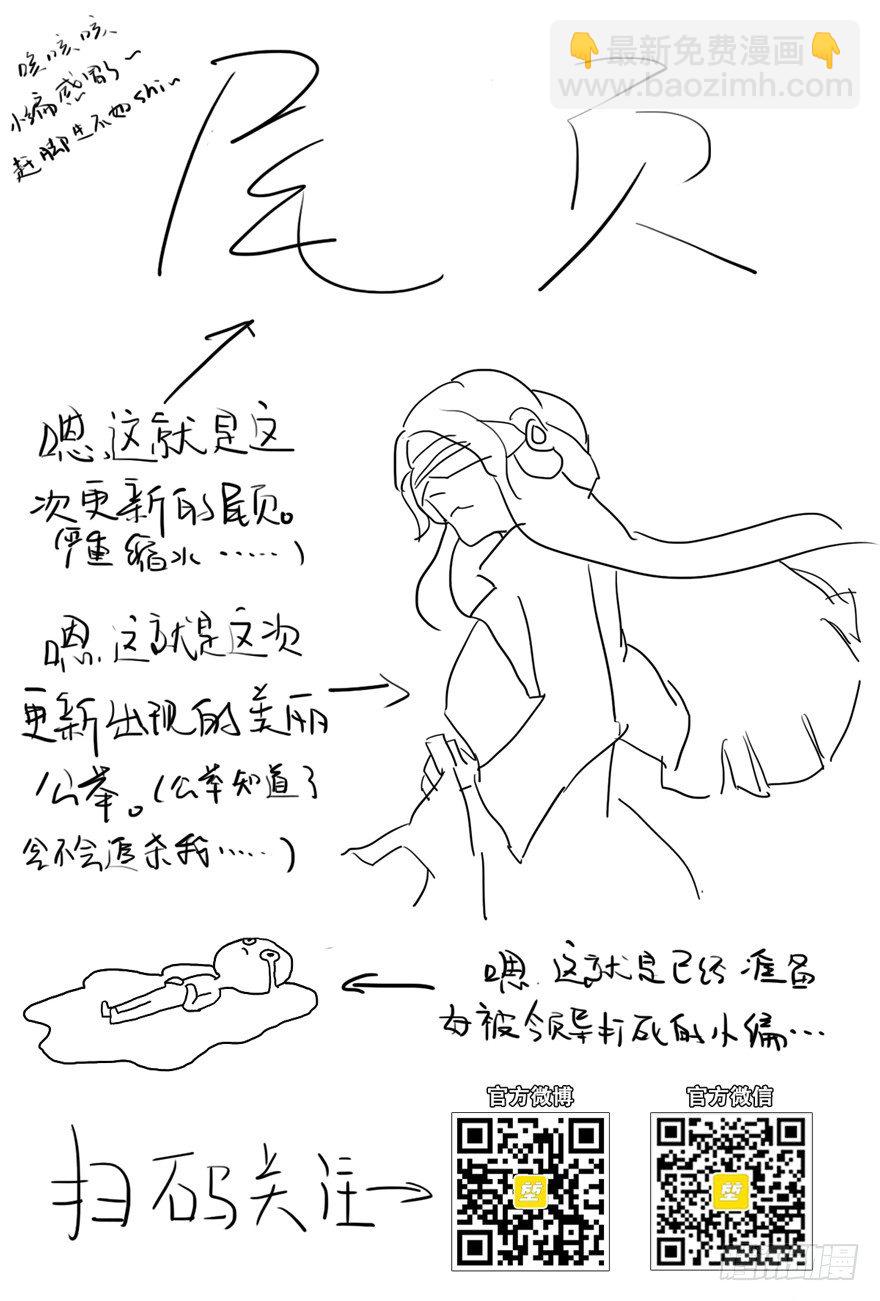 咳咳咳
小编感冒了~
赶脚生不如shi~
最新免费漫画
www.baozimh.com
尾页
嗯,这就是这
次更新的尾页。
(严重缩水……)
嗯,这就是这次
更新出现的美丽
公举。(公举知道了
会不会追杀我……)
嗯,这就是已经准备
好被领导打死的小编…
官方微博
官方微信
扫码关注